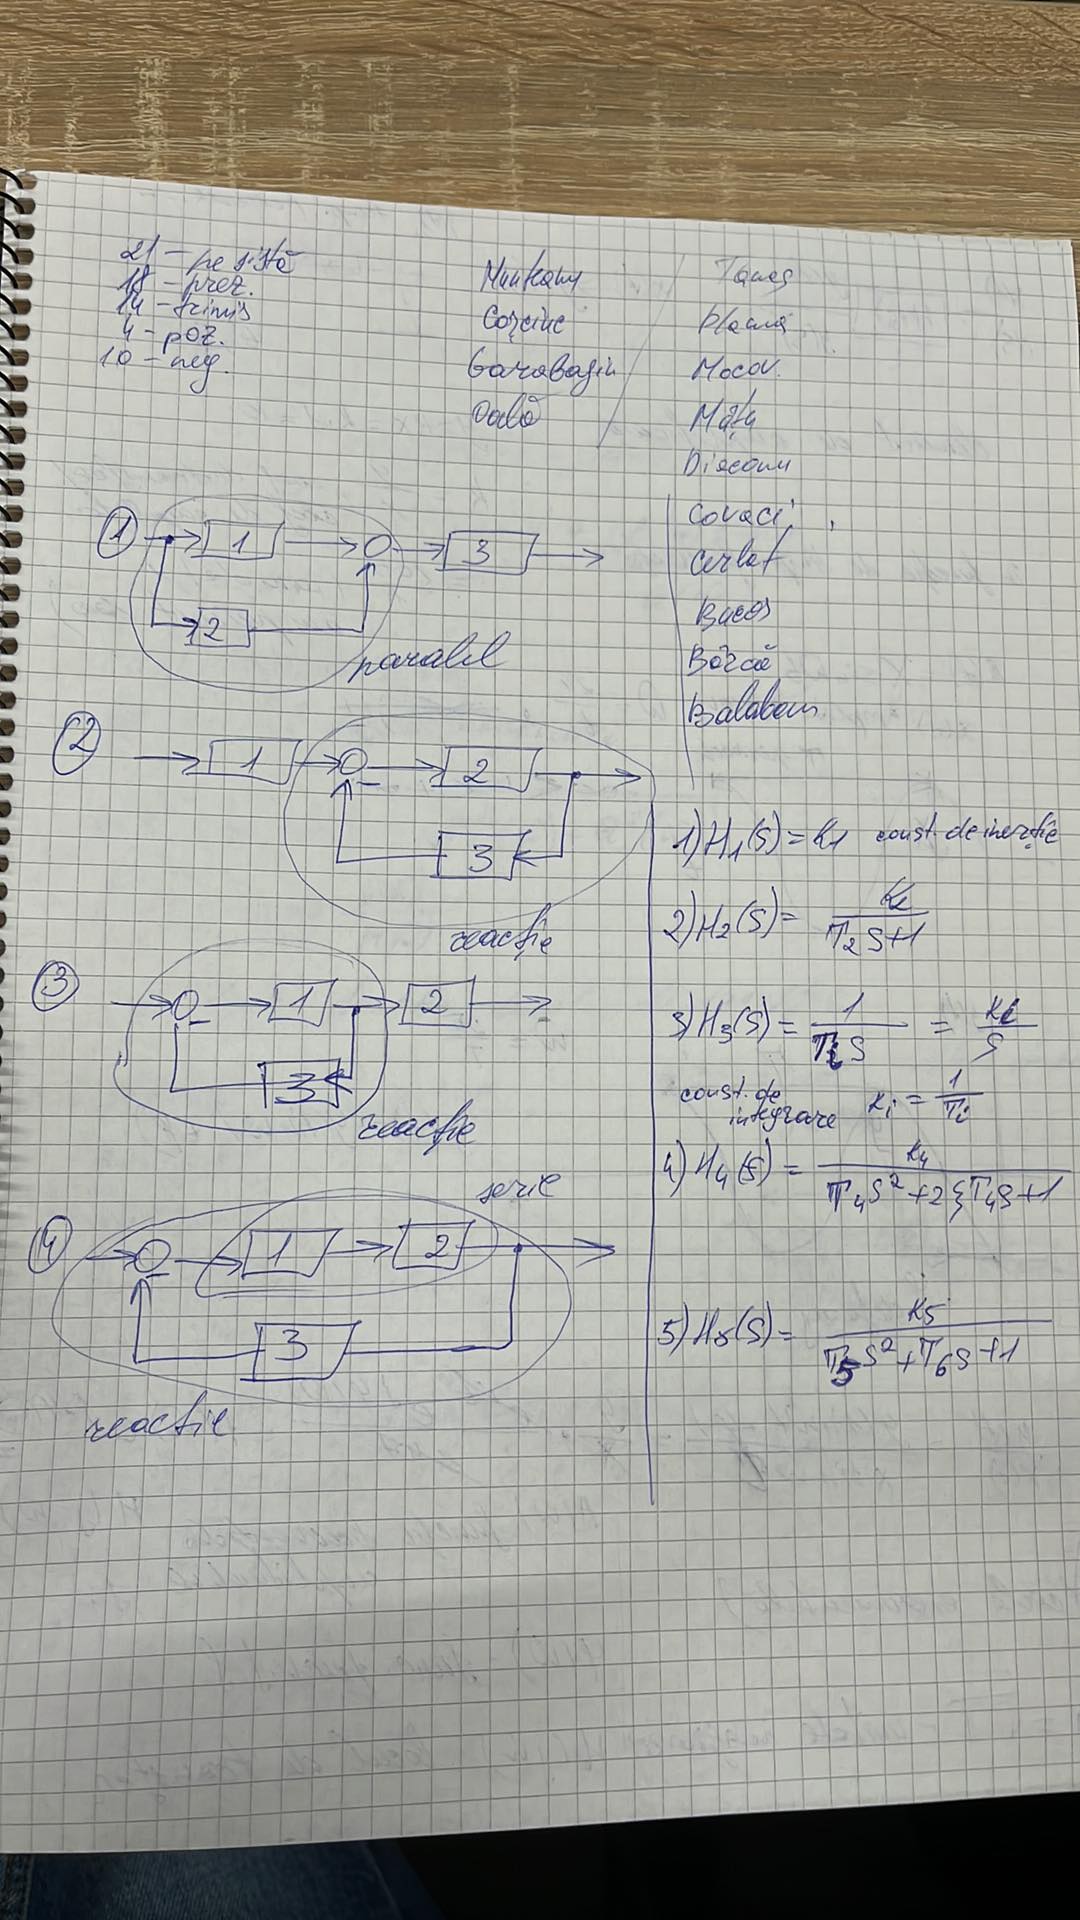 21 – pe listă
18 – prez.
14 – trimis
4 – poz.
10 – neg.
Munteanu
Corcinc
Garabagiu
Dabă
Tanas
Plamă
Mocov.
Mâțu
Diaconu
Covaci
Cerlat
Bacos
Balaban
① 1 3
2
paralel
② 1 2
–
3
reacție
③ 1 2
–
3
reacție
serie
④ 1 2
–
3
reacție
1) H1(s) = K1 const. de inerție
2) H2(s) = K2 / (T2 s+1)
3) H3(s) = 1 / (Ti s) = Ki / s
const. de
integrare Ki = 1 / Ti
4) H4(s) = K4 / (T4 s² + 2ξT4s+1)
5) H5(s) = K5 / (T5 s² + T6 s +1)